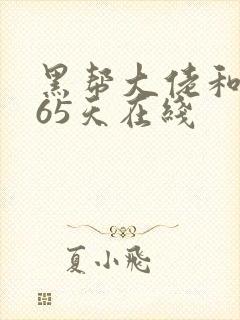 黑帮大佬和
65天在线
夏小飛